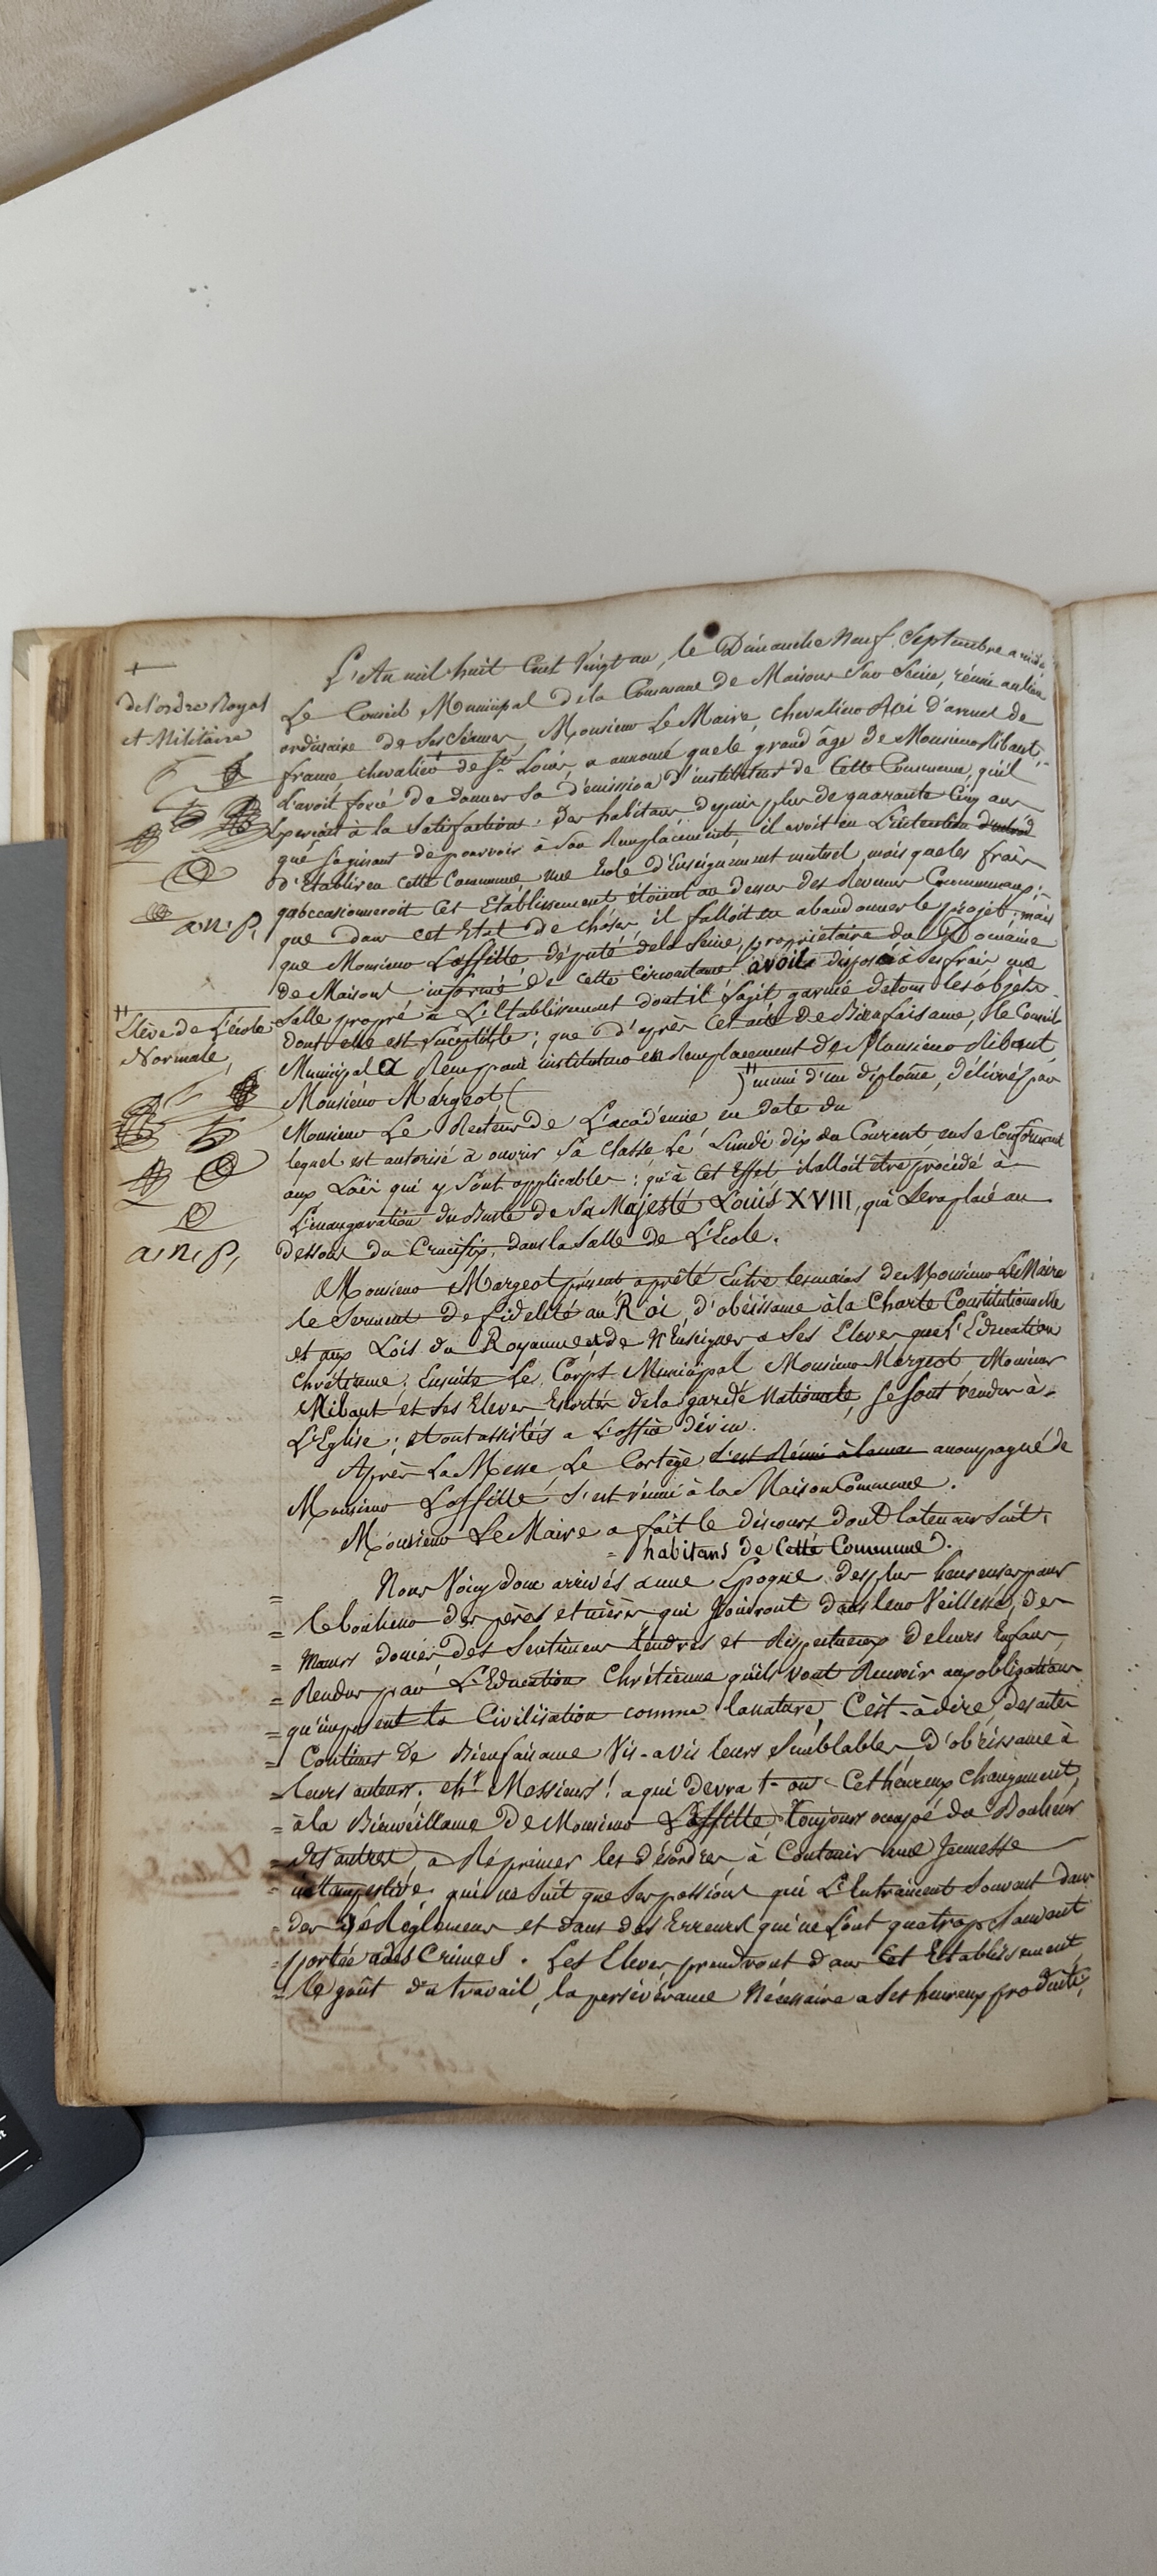 +
de l'ordre Royal
et Militaire
a.n.p.
"
Elève de L'école
Normale,
a.n.p,
L'An mil huit Cent Vingt un, le Dimanche Neuf Septembre a midi
Le Conseil Municipal de la Commune de Maisons Sur Seine, réuni au lieu
ordinaire de Ses Séances, Monsieur Le Maire, Chevalier Roi d'armes de
france, chevalier + de St. Louis, a annoncé que le grand âge de Monsieur Ribaut,
L'avoit forcé de donner Sa démission d'instituteur de Cette Commune, qu'il
Exerçait à la Satisfaction des habitans depuis plus de quarante Cinq ans
que S'agissant de pourvoir à Son Remplacement, il avoit eu L'intention d'abord
d'Etablir en Cette Commune une Ecole d'Enseignement mutuel, mais que les frais
qu'occasionneroit Cet Etablissement étoient au dessus des Revenus Communaux;
que dans Cet Etat de choses, il falloit en abandonner le projet; mais
que Monsieur Laffitte député de la Seine, propriétaire du Domaine
de Maisons informé de Cette Circonstance avoit disposé à Ses frais une
Salle propre à L'Etablissement dont il S'agit garnie de tous les objets
dont elle est Suceptible; que d'après Cet acte de Bienfaisance, le Conseil
Municipal a Reçu pour instituteur en Remplacement de Monsieur Ribaut,
Monsieur Margeot ( )" muni d'un diplome, délivré par
Monsieur Le Recteur de L'académie en date du
lequel est autorisé à ouvrir Sa Classe Le Lundi dix du Courant en Se Conformant
aux Loix qui y Sont applicables; qu'à Cet Effet il alloit être procédé à
L'inauguration du Buste de Sa Majesté Louis XVIII, qui Sera placé au
dessous du Crucifix, dans la Salle de L'Ecole.
Monsieur Margeot présent a prêté Entre les mains de Monsieur Le Maire
le Serment de fidelité au Roi, d'obéissance à la Charte Constitutionnelle
et aux Lois du Royaume et de N'Enseigner à Ses Eleves que L'Education
Chrétienne. Ensuite Le Corps Municipal Monsieur Margeot Monsieur
Ribaut et Ses Eleves Escortés de la garde Nationale, Se Sont rendus à
L'Eglise; et ont assistés a L'office divin.
Après La Messe Le Cortège s'est Réuni à la accompagné de
Monsieur Laffitte S'est réuni à la Maison Commune.
Monsieur Le Maire a fait le discours dont la teneur Suit:
= habitans de Cette Commune.
= Nous Voicy donc arrivés a une Epoque des plus heureuses pour
= le bonheur des pères et mères, qui Jouiront dans leur Veillesse, des
= Mœurs douces, des Sentimens tendres et Respectueux de leurs Enfans,
= Rendus par L'Education Chrétienne qu'ils vont Recevoir aux obligations
= qu'imposent la Civilisation comme la nature, C'est-à-dire, des actes
= Continus de Bienfaisance Vis-avis leurs Semblables, d'obéissance à
= leurs auteurs. eh! Messieurs! a qui devra t-on Cet heureux changement,
= à la Bienveillance De Monsieur Laffitte toujours occupé du Bonheur
= des autres, a Réprimer les désordres, à Contenir une Jeunesse
= intempestive, qui ne Suit que Ses passions qui L'Entrainent Souvent dans
= des déréglemens et dans des Erreurs qui ne L'ont que trop Souvent
= portée a des Crimes. Les Eleves prendront dans Cet Etablissement,
= le goût du travail, la persévérance Nécessaire a Ses heureux produits,